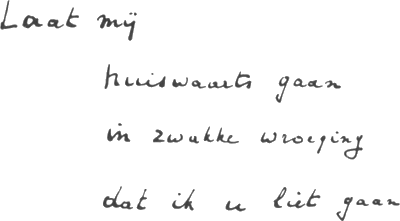 Laat mij
huiswaarts gaan
in zwakke wroeging
dat ik u liet gaan